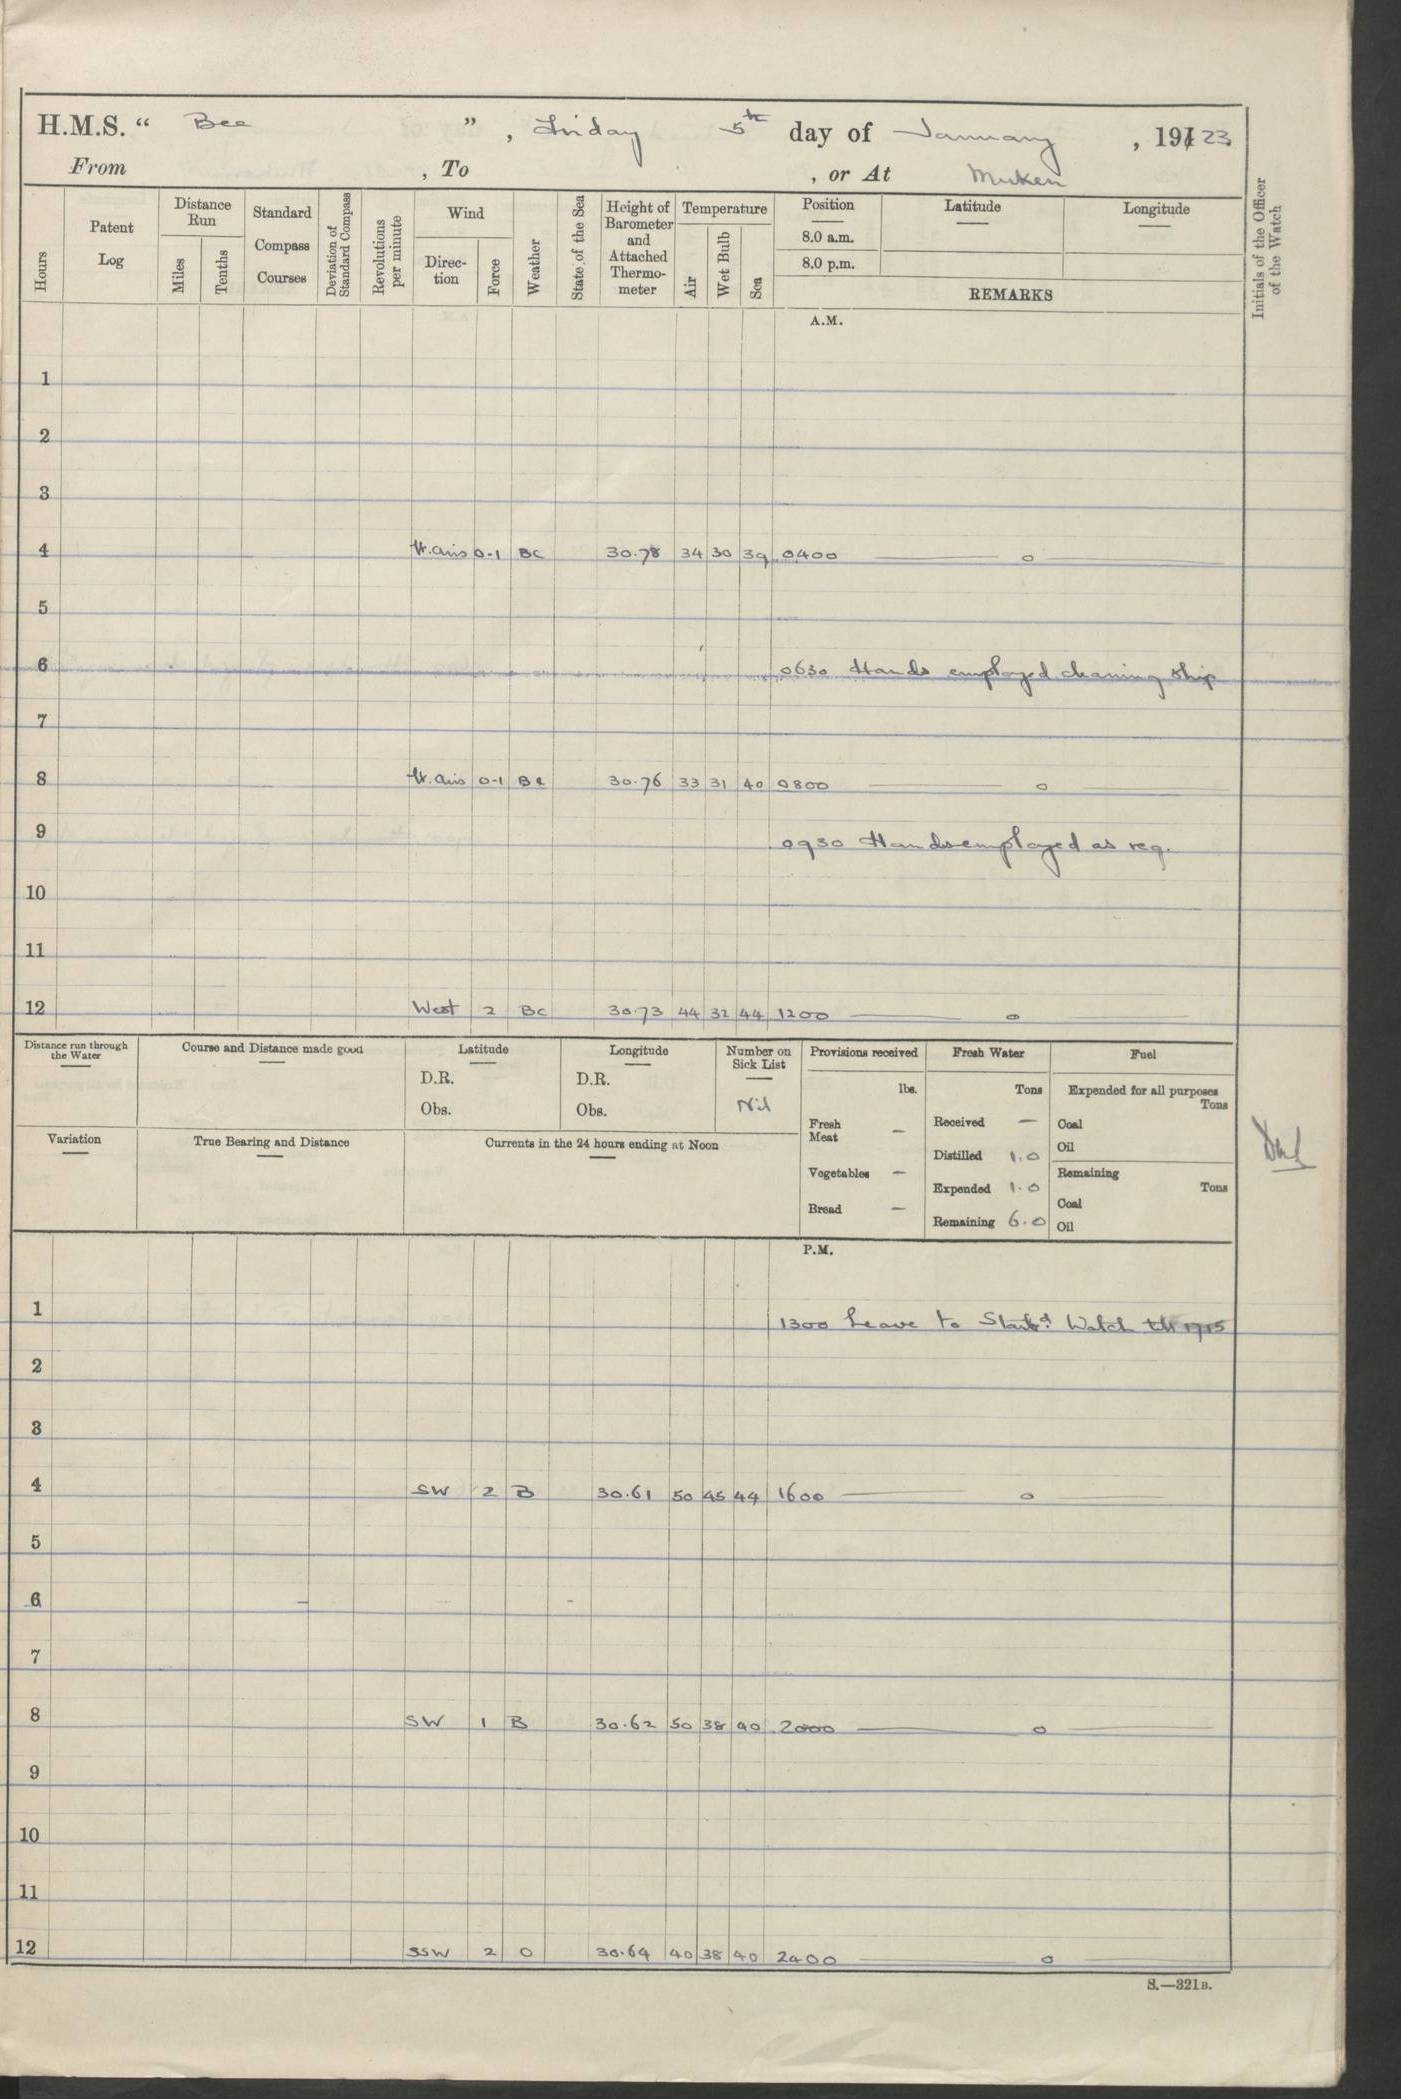 H.M.S. “ Bee ”, Friday 5th day of January, 191 23
From , To , or At Muken
Hours
Patent Log
Distance Run
Miles
Tenths
Standard Compass Courses
Deviation of Standard Compass
Revolutions per minute
Wind
Direc-tion
Force
Weather
State of the Sea
Height of Barometer and Attached Thermo-meter
Temperature
Air
Wet Bulb
Sea
Position
8.0 a.m.
8.0 p.m.
Latitude
Longitude
REMARKS
Initials of the Officer of the Watch
A.M.
1
2
3
4 lt. airs 0-1 BC 30.78 34 30 39 0400 — o —
5
6 0630 Hands employed cleaning ship
7
8 lt. airs 0-1 Bc 30.76 33 31 40 0800 — o —
9 0930 Hands employed as req.
10
11
12 West 2 Bc 30.73 44 32 44 1200 — o —
Distance run through the Water
Course and Distance made good
Latitude
D.R.
Obs.
Longitude
D.R.
Obs.
Number on Sick List
Nil
Provisions received
lbs.
Fresh Meat —
Vegetables —
Bread —
Fresh Water
Tons
Received —
Distilled 1.0
Expended 1.0
Remaining 6.0
Fuel
Expended for all purposes
Tons
Coal
Oil
Remaining
Tons
Coal
Oil
Variation
True Bearing and Distance
Currents in the 24 hours ending at Noon
P.M.
1 1300 Leave to Starbd. Watch till 1715
2
3
4 SW 2 B 30.61 50 45 44 1600 — o —
5
6
7
8 SW 1 B 30.62 50 38 40 2000 — o —
9
10
11
12 SSW 2 O 30.64 40 38 40 2400 — o —
S.—321B.